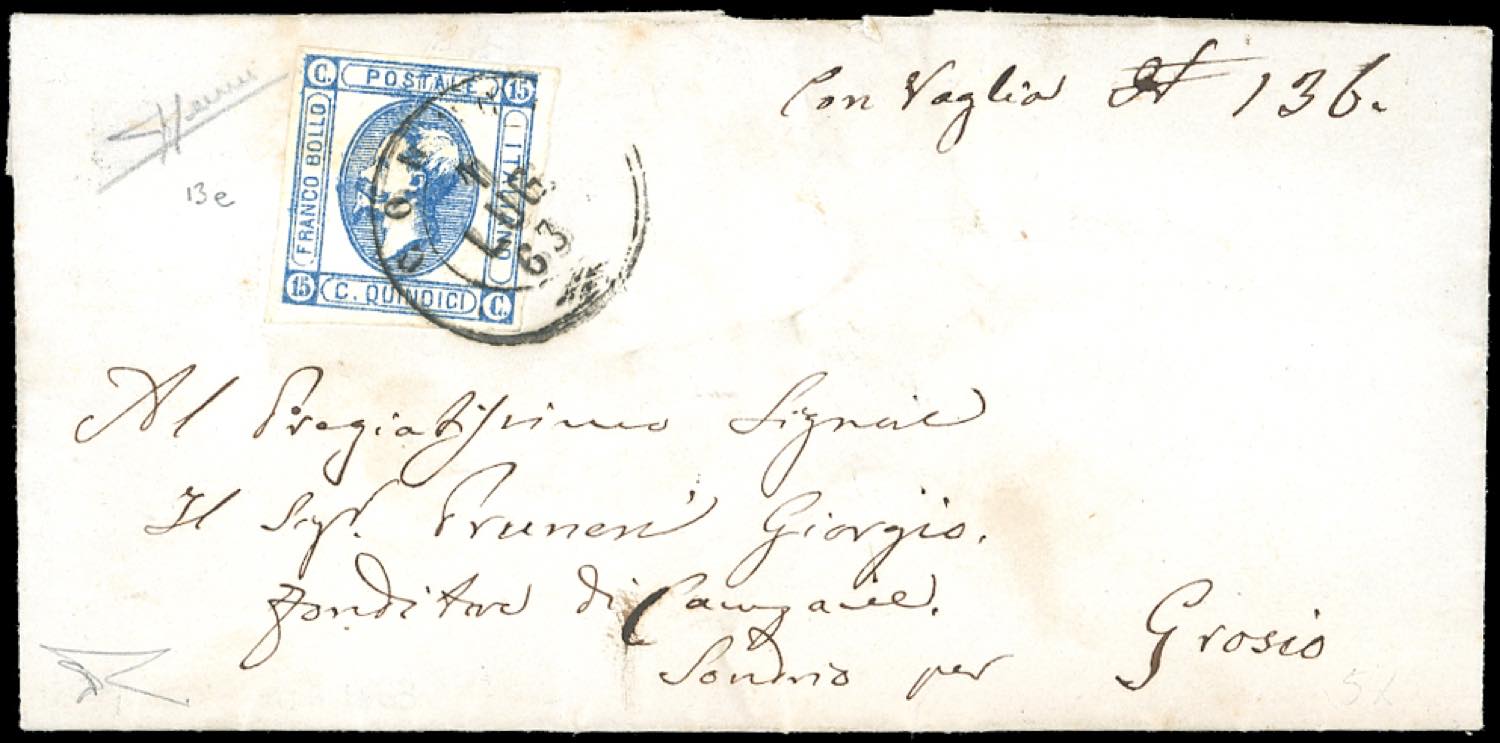 Con Vaglia 136.
C. POSTALE 15
FRANCO BOLLO
ITALIANO
15 C. QUINDICI C.
LUG
63
13e
Al Pregiatissimo Signore
Il Sigr. Pruneri Giorgio.
Fonditore di Campane.
Sondrio per Grosio